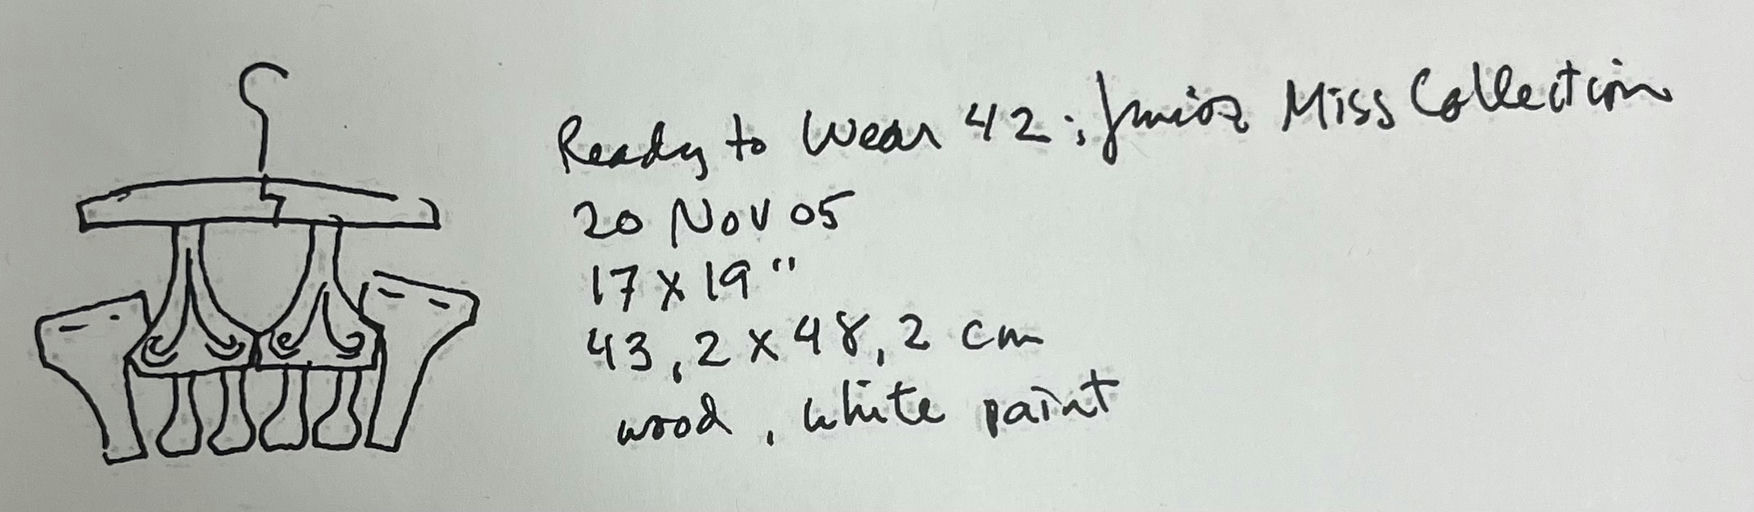 Ready to Wear 42: Junior Miss Collection
20 Nov 05
17 x 19"
43,2 x 48,2 cm
wood, white paint